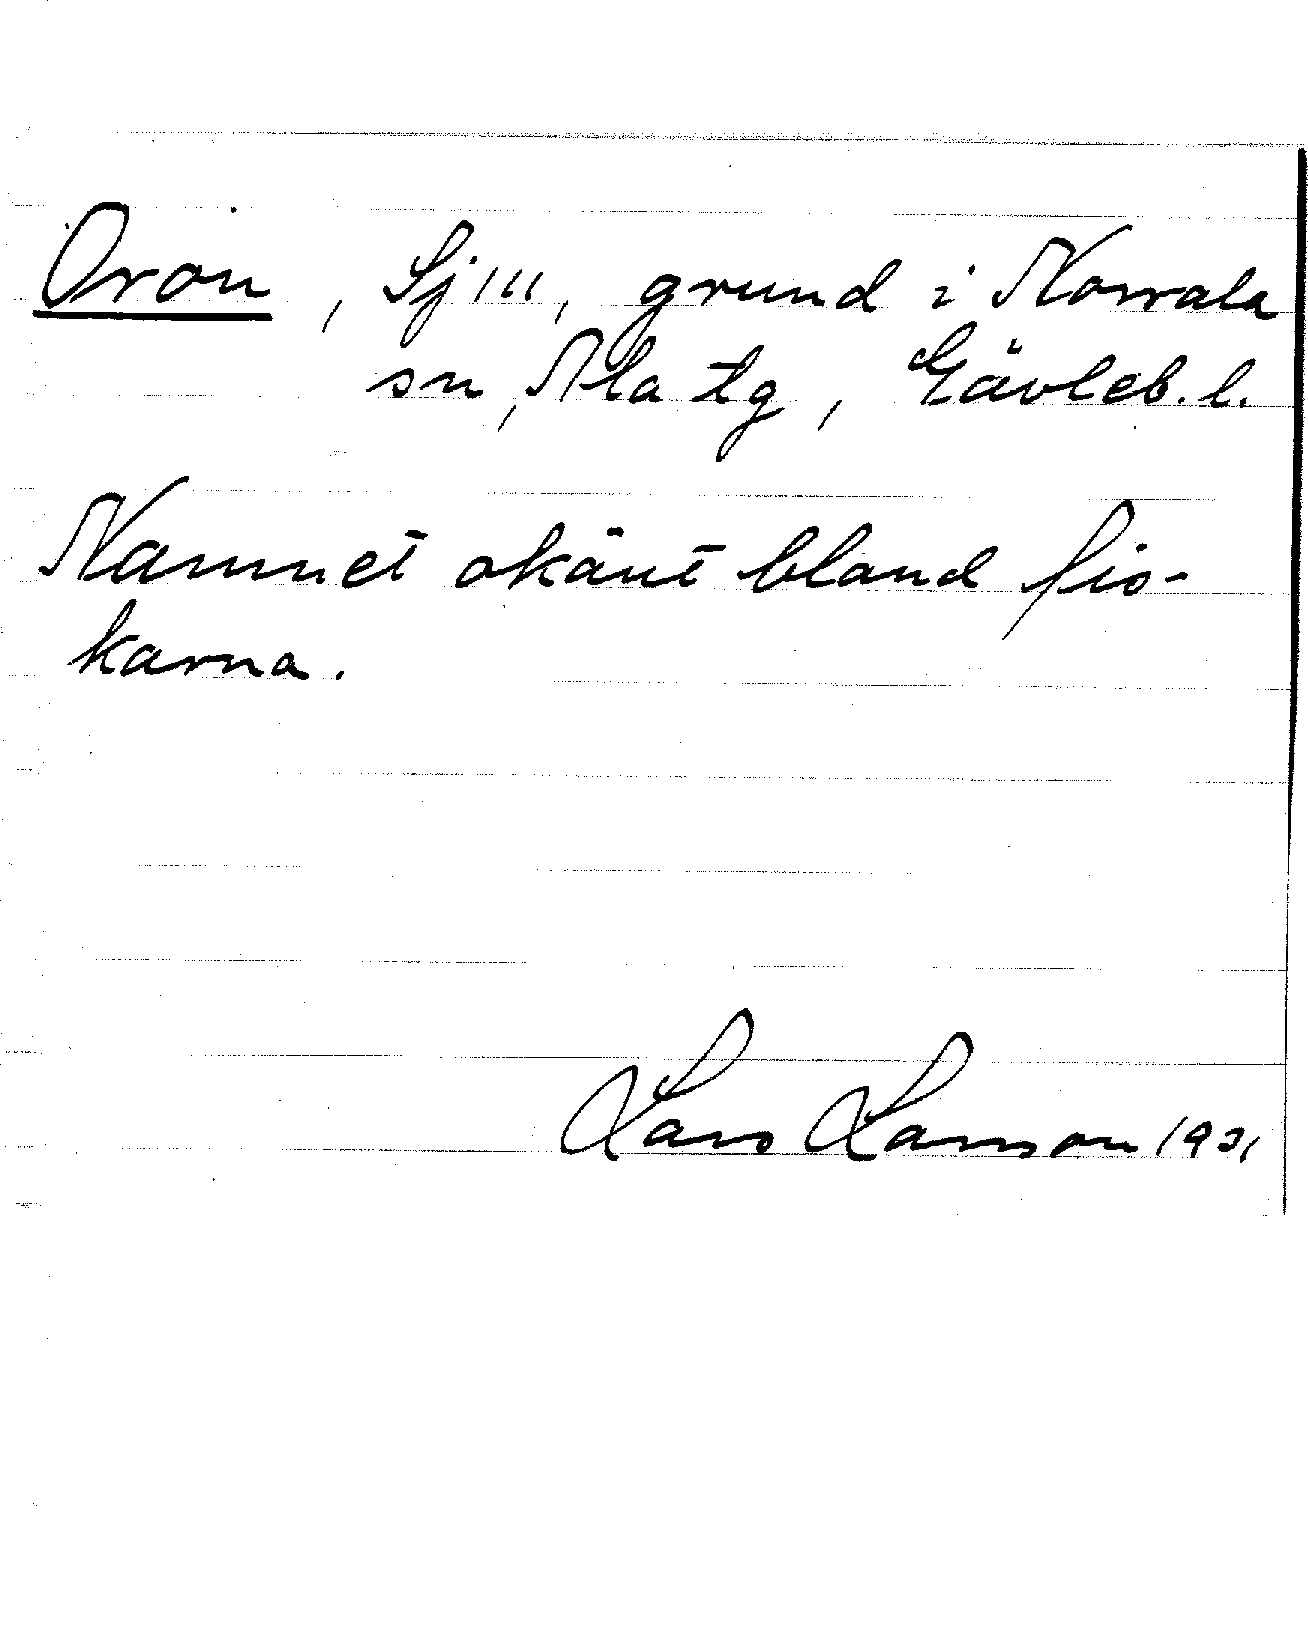 Oron, Sj 111, grund i Norrala
sn, Ala tg, Gävleb. l.
Namnet okänt bland fis-
karna.
Lars Larsson 1931